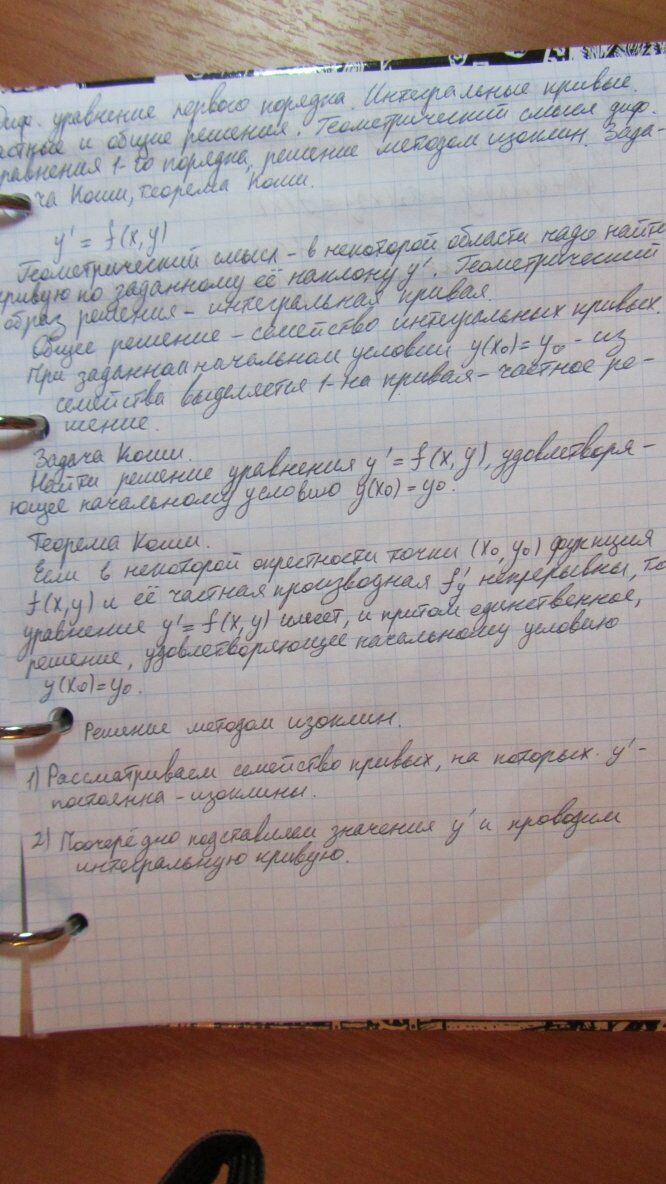 Диф. уравнение первого порядка. Интегральные кривые.
астные и общие решения. Геометрический смысл диф.
равнения 1-го порядка, решение методом изоклин. Зада-
ча Коши, теорема Коши.
y' = f(x, y)
Геометрический смысл - в некоторой области надо найти
кривую по заданному её наклону y'. Геометрический
образ решения - интегральная кривая.
Общее решение - семейство интегральных кривых.
При заданном начальном условий y(x₀) = y₀ - из
семейства выделяется 1-на кривая - частное ре-
шение.
Задача Коши.
Найти решение уравнения y' = f(x, y), удовлетворя-
ющее начальному условию y(x₀) = y₀.
Теорема Коши.
Если в некоторой окрестности точки (x₀, y₀) функция
f(x,y) и её частная производная f'y непрерывны, то
уравнение y' = f(x, y) имеет, и притом единственное,
решение, удовлетворяющее начальному условию
y(x₀) = y₀.
Решение методом изоклин.
1) Рассматриваем семейство кривых, на которых y' -
постоянна - изоклины.
2) Поочерёдно подставляем значения y' и проводим
интегральную кривую.